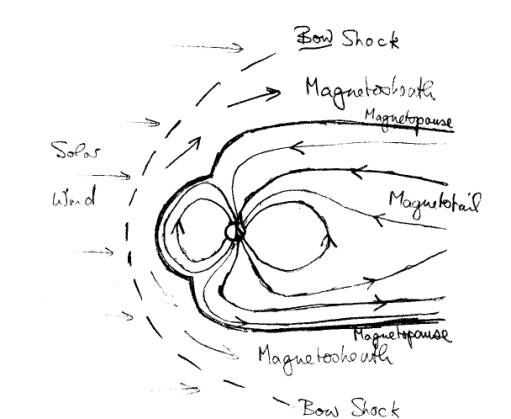 Bow Shock
Magnetosheath
Magnetopause
Solar
Wind
Magnetotail
Magnetopause
Magnetosheath
Bow Shock